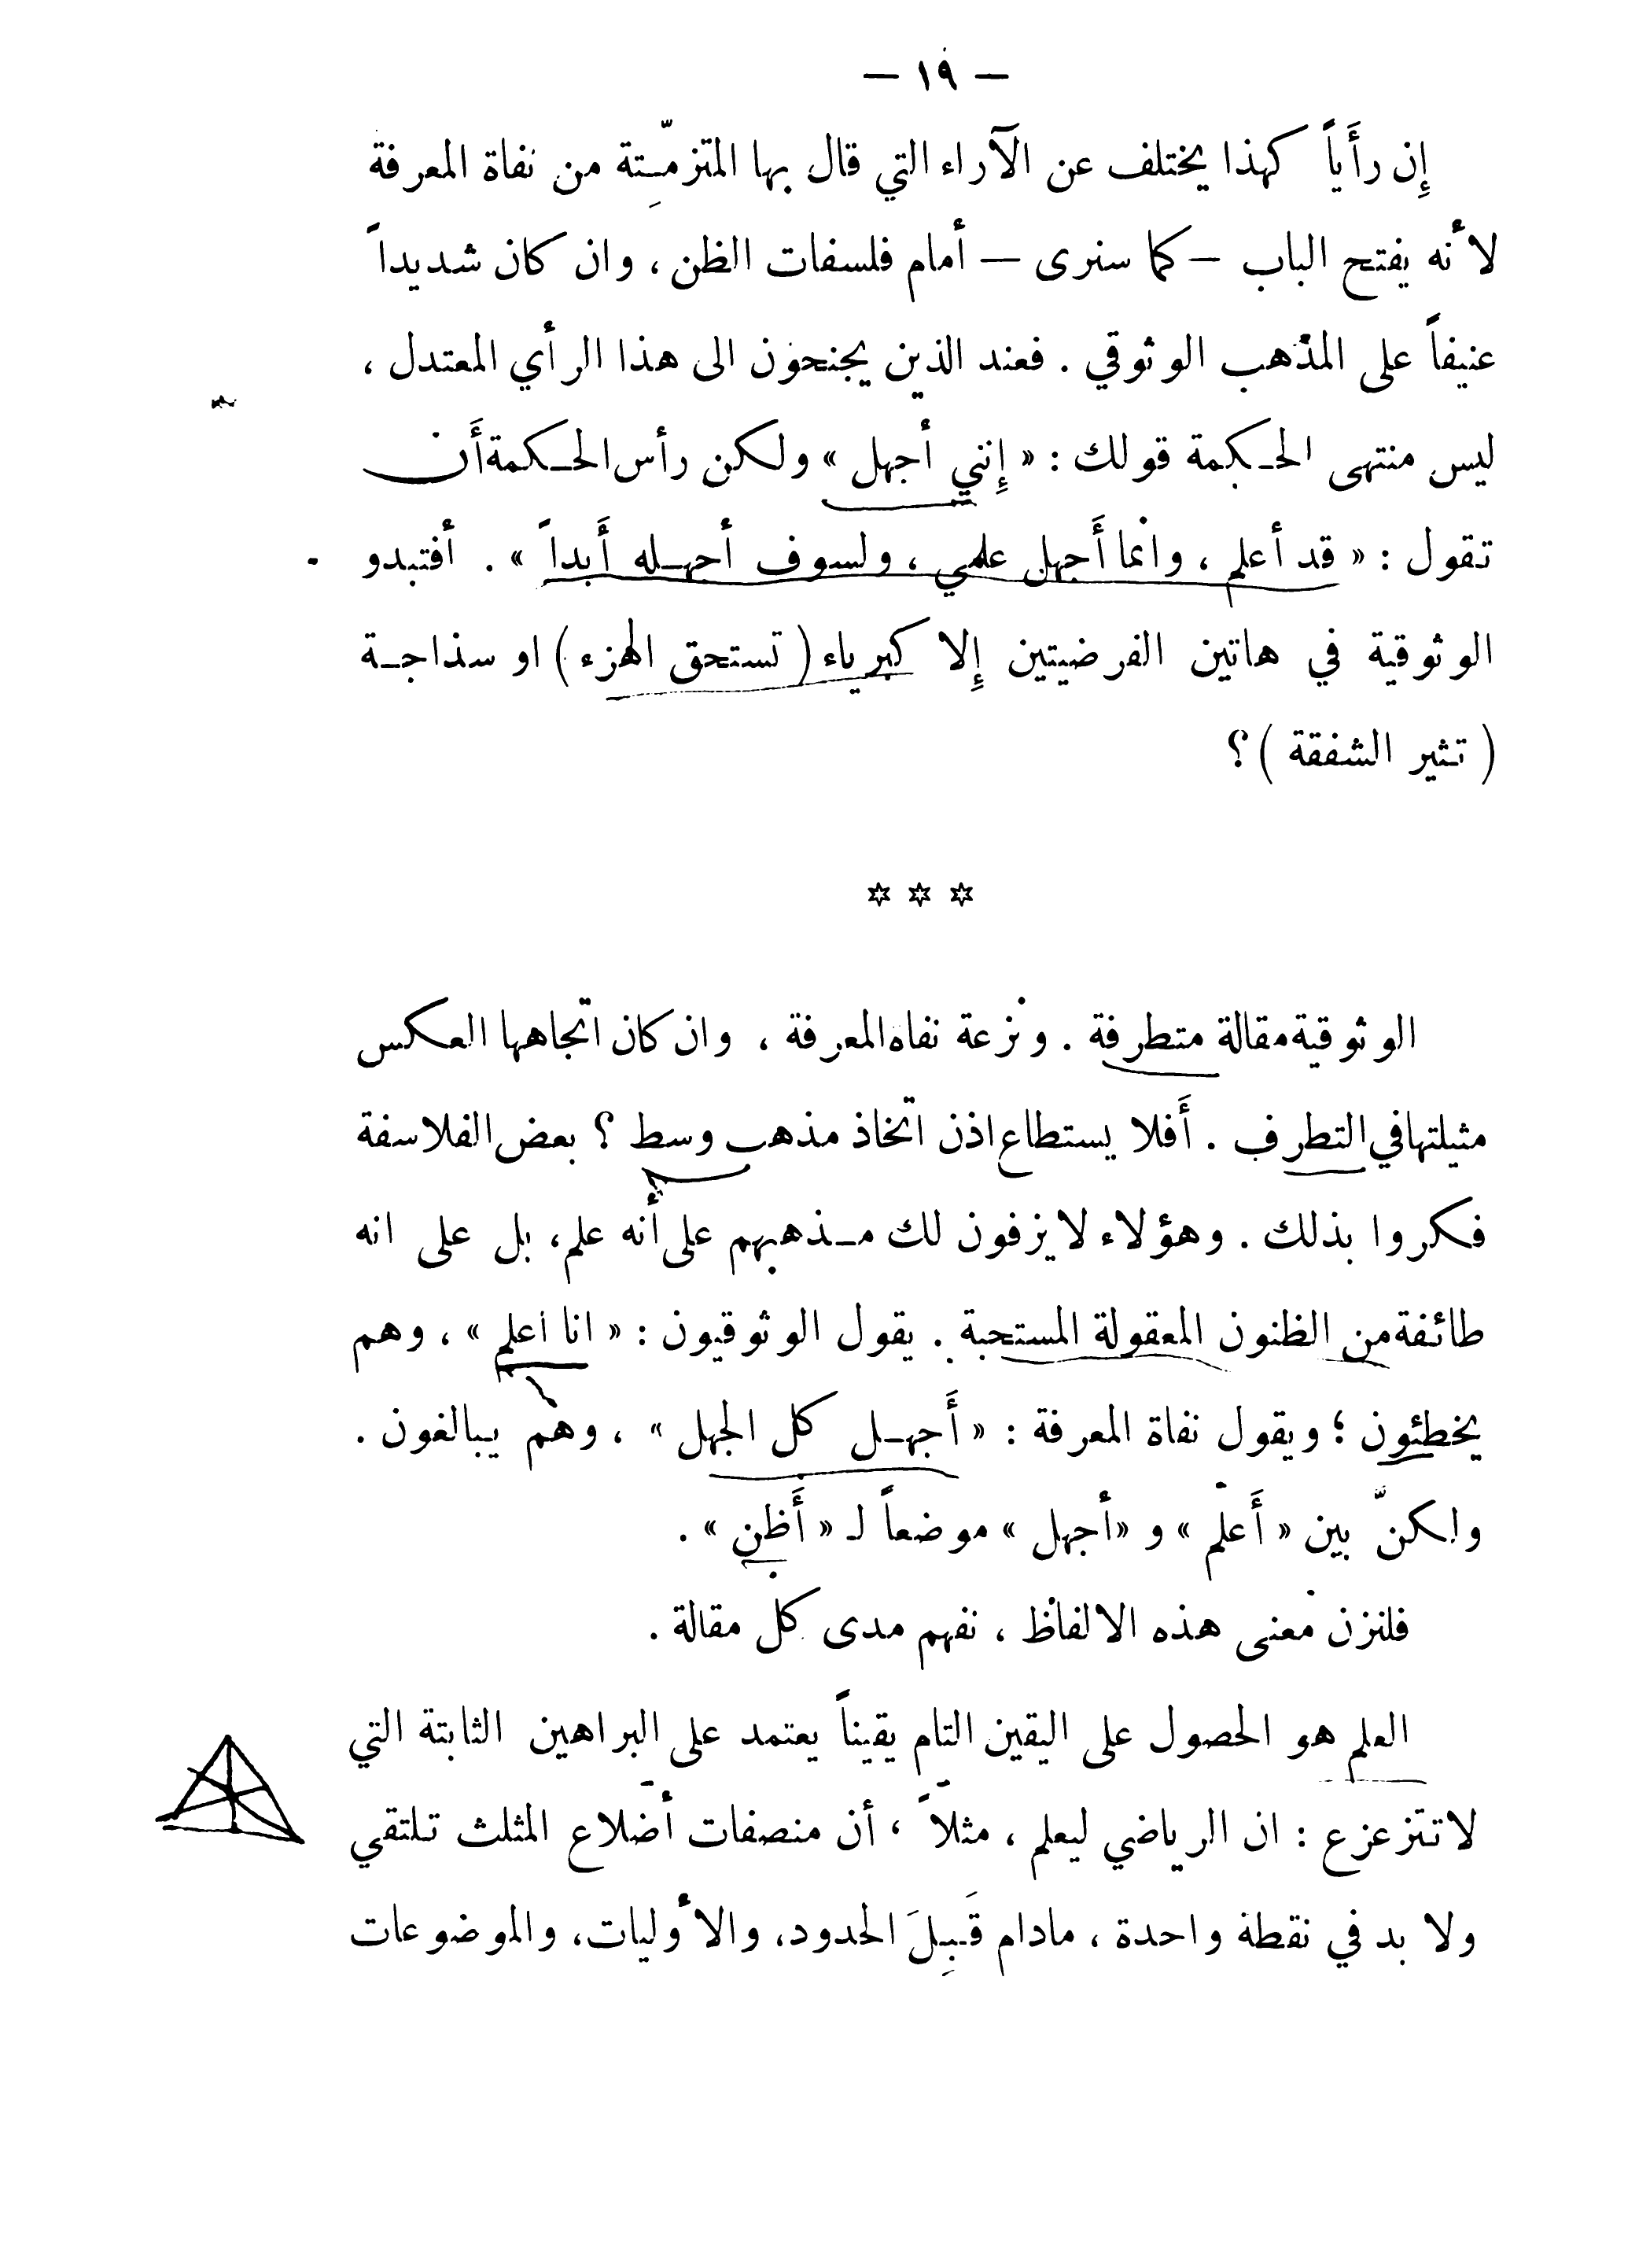 — ١٩ —
إِن رأَياً كهذا يختلف عن الآراء التي قال بها المتزمّتة من نفاة المعرفة
لأنه يفتح الباب — كما سنرى — أمام فلسفات الظن ، وان كان شديداً
عنيفاً على المذهب الوثوقي . فعند الذين يجنحون الى هذا الرأي المعتدل ،
ليس منتهى الحكمة قولك : « إِنني أجهل » ولكن رأس الحكمة أَن
تقول : « قد أعلم ، وانما أَجهل علمي ، ولسوف أجهله أَبداً » . أفتبدو
الوثوقية في هاتين الفرضيتين إِلا كبرياء ( تستحق الهزء ) او سذاجة
( تثير الشفقة ) ؟
* * *
الوثوقية مقالة متطرفة . ونزعة نفاه المعرفة ، وان كان اتجاهها العكس
مثيلتها في التطرف . أَفلا يستطاع اذن اتخاذ مذهب وسط ؟ بعض الفلاسفة
فكروا بذلك . وهؤلاء لا يزفون لك مذهبهم على أنه علم، بل على انه
طائفة من الظنون المعقولة المستحبة . يقول الوثوقيون : « انا اعلم » ، وهم
يخطئون ؛ ويقول نفاة المعرفة : « أَجهل كل الجهل » ، وهم يبالغون .
ولكنّ بين « أَعلم » و «أجهل » موضعاً لـ « أَظن » .
فلنزن معنى هذه الالفاظ ، نفهم مدى كل مقالة .
العلم هو الحصول على اليقين التام يقيناً يعتمد على البراهين الثابتة التي
لا تتزعزع : ان الرياضي ليعلم ، مثلاً ، أن منصفات أضلاع المثلث تلتقي
ولا بد في نقطة واحدة ، مادام قَبِلَ الحدود، والأوليات، والموضوعات